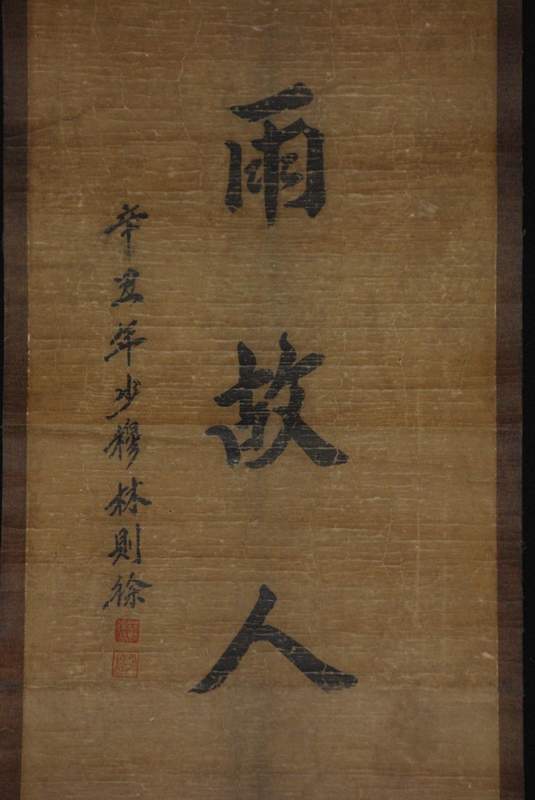 雨故人
辛丑年少穆林則徐